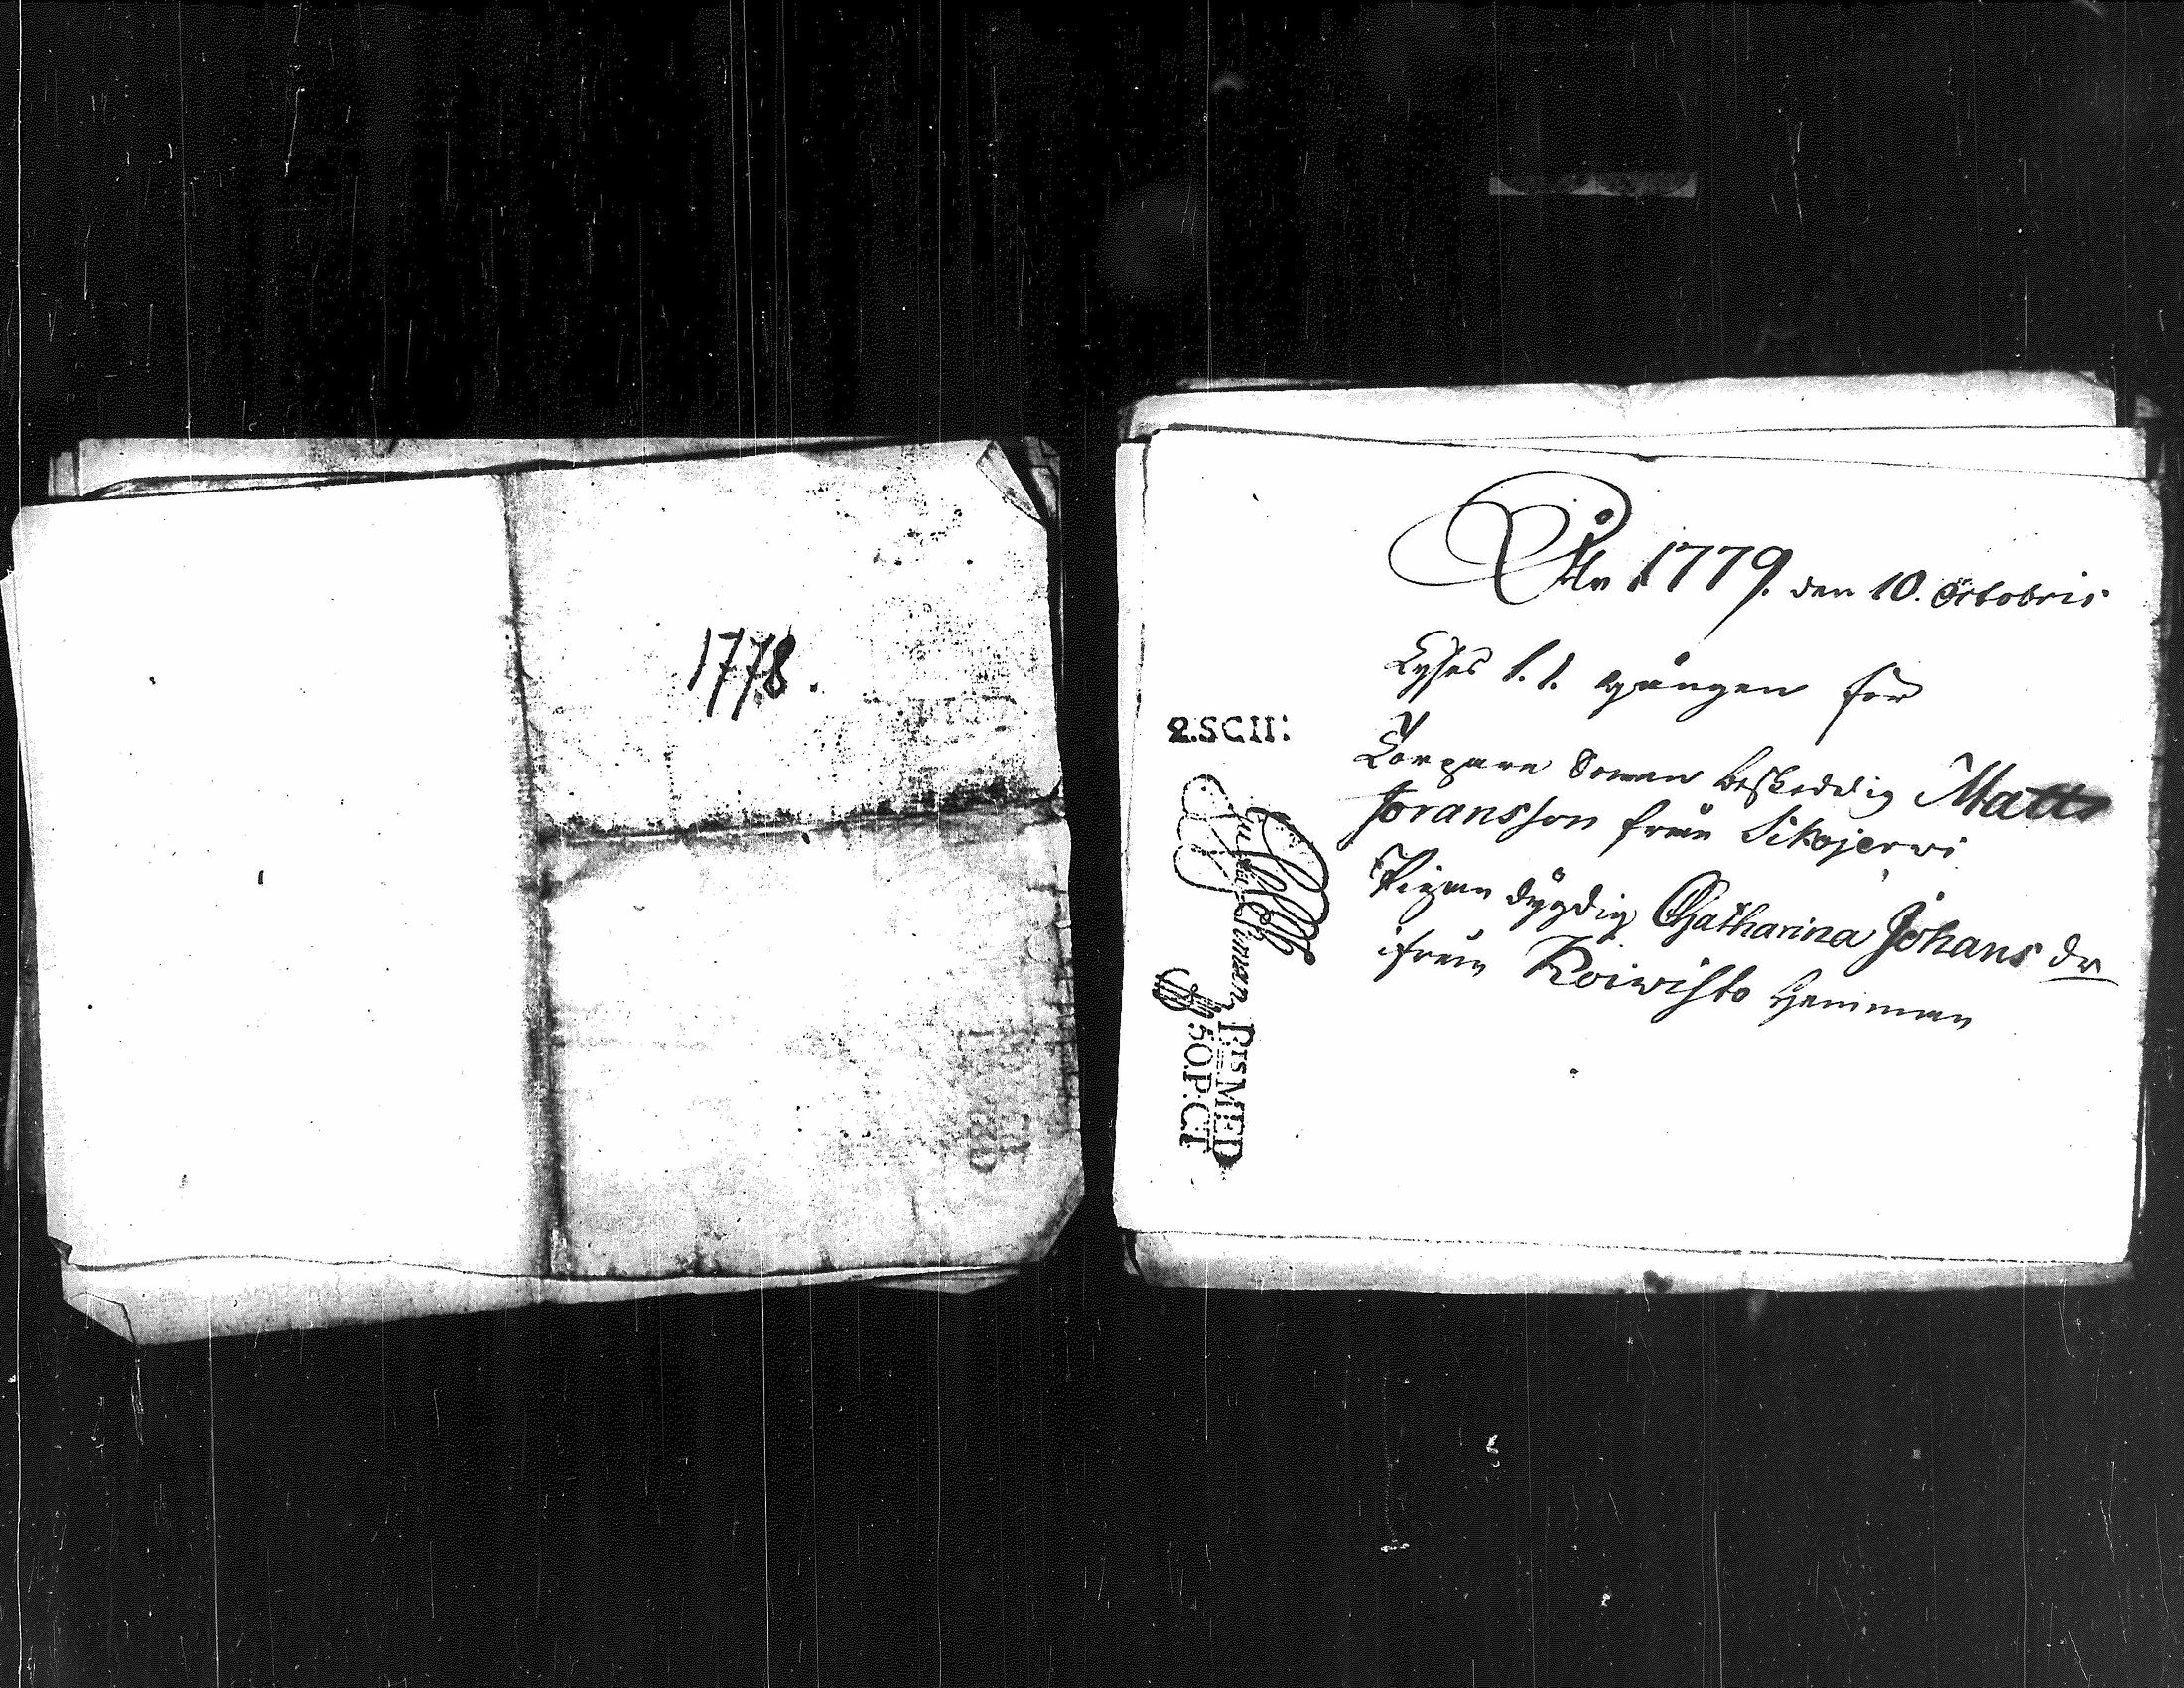 1778.
År 1779. den 10. Octobris
Lyses 1.1. gången för
Torpare Sonen beskedelig Matts
Joransson från Sikajerwi
Pigan dygdig Chatharina Johans dr
ifrån Koiwisto Hemman
2.SCH:
PtsMED
50.P:CT